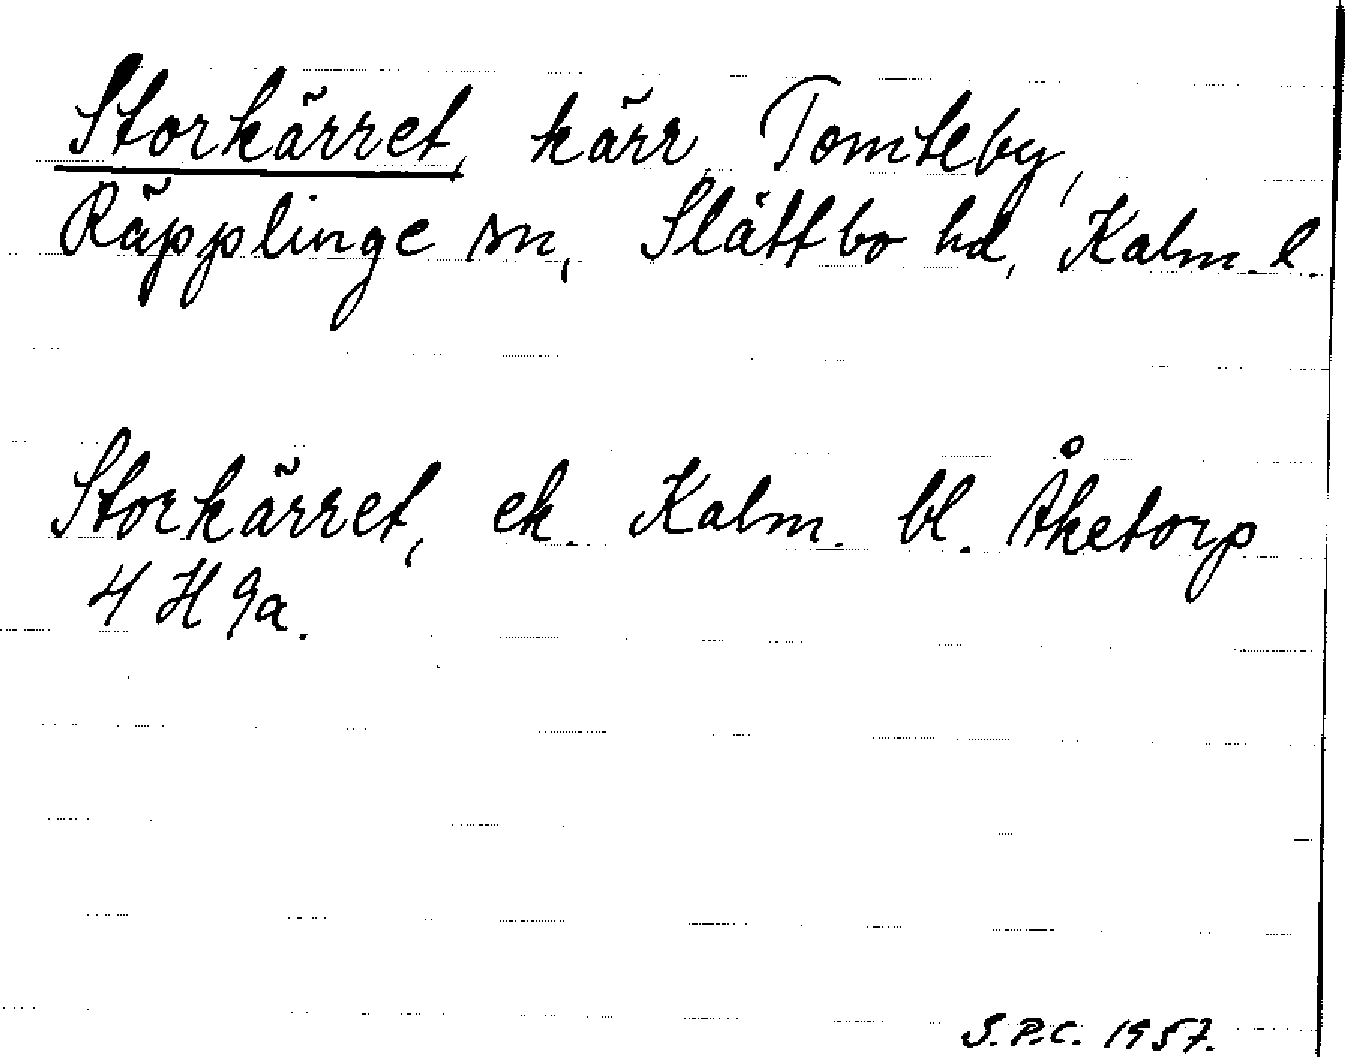 Storkärret, kärr, Tomteby,
Räpplinge sn, Slättbo hd, Kalm. l.
Storkärret, ek. Kalm. bl. Åketorp
4 H 9a.
S.P.C. 1957.